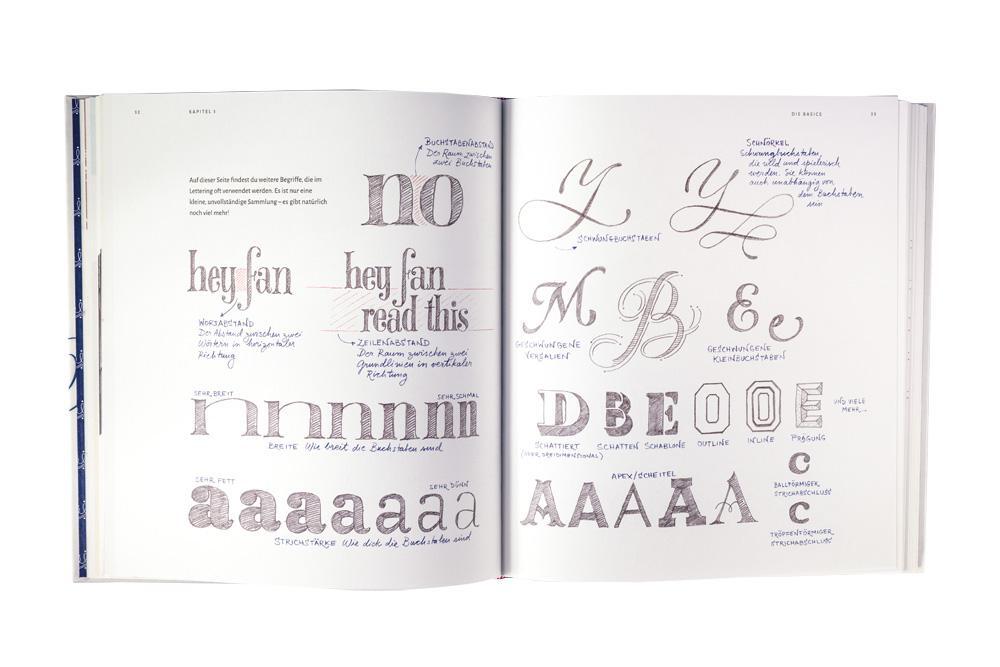 KAPITEL 1
Auf dieser Seite findest du weitere Begriffe, die im
Lettering oft verwendet werden. Es ist nur eine
kleine, unvollständige Sammlung – es gibt natürlich
noch viel mehr!
BUCHSTABENABSTAND
Der Raum zwischen
zwei Buchstaben
no
hey fan
WORTABSTAND
Der Abstand zwischen zwei
Wörtern in horizontaler
Richtung
hey fan
read this
ZEILENABSTAND
Der Raum zwischen zwei
Grundlinien in vertikaler
Richtung
SEHR BREIT
SEHR SCHMAL
nnnnnnn
BREITE Wie breit die Buchstaben sind
SEHR FETT
SEHR DÜNN
aaaaaaa
STRICHSTÄRKE Wie dick die Buchstaben sind
DIE BASICS
33
Y
SCHWUNGBUCHSTABEN
Y
SCHNÖRKEL
Schwungbuchstaben,
die wild und spielerisch
werden. Sie können
auch unabhängig von
dem Buchstaben
sein
M B
GESCHWUNGENE
VERSALIEN
E e
GESCHWUNGENE
KLEINBUCHSTABEN
D B E O O E
UND VIELE
MEHR...
SCHATTIERT
(ODER DREIDIMENSIONAL)
SCHATTEN
SCHABLONE
OUTLINE
INLINE
PRÄGUNG
APEX/SCHEITEL
AAAAA
c
BALLFÖRMIGER
STRICHABSCHLUSS
c
TROPFENFÖRMIGER
STRICHABSCHLUSS